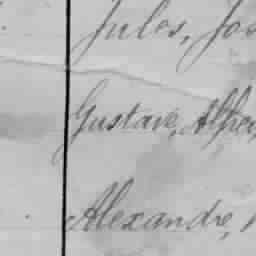 Jules, Jos
Gustave, Alfred,
Alexandre,